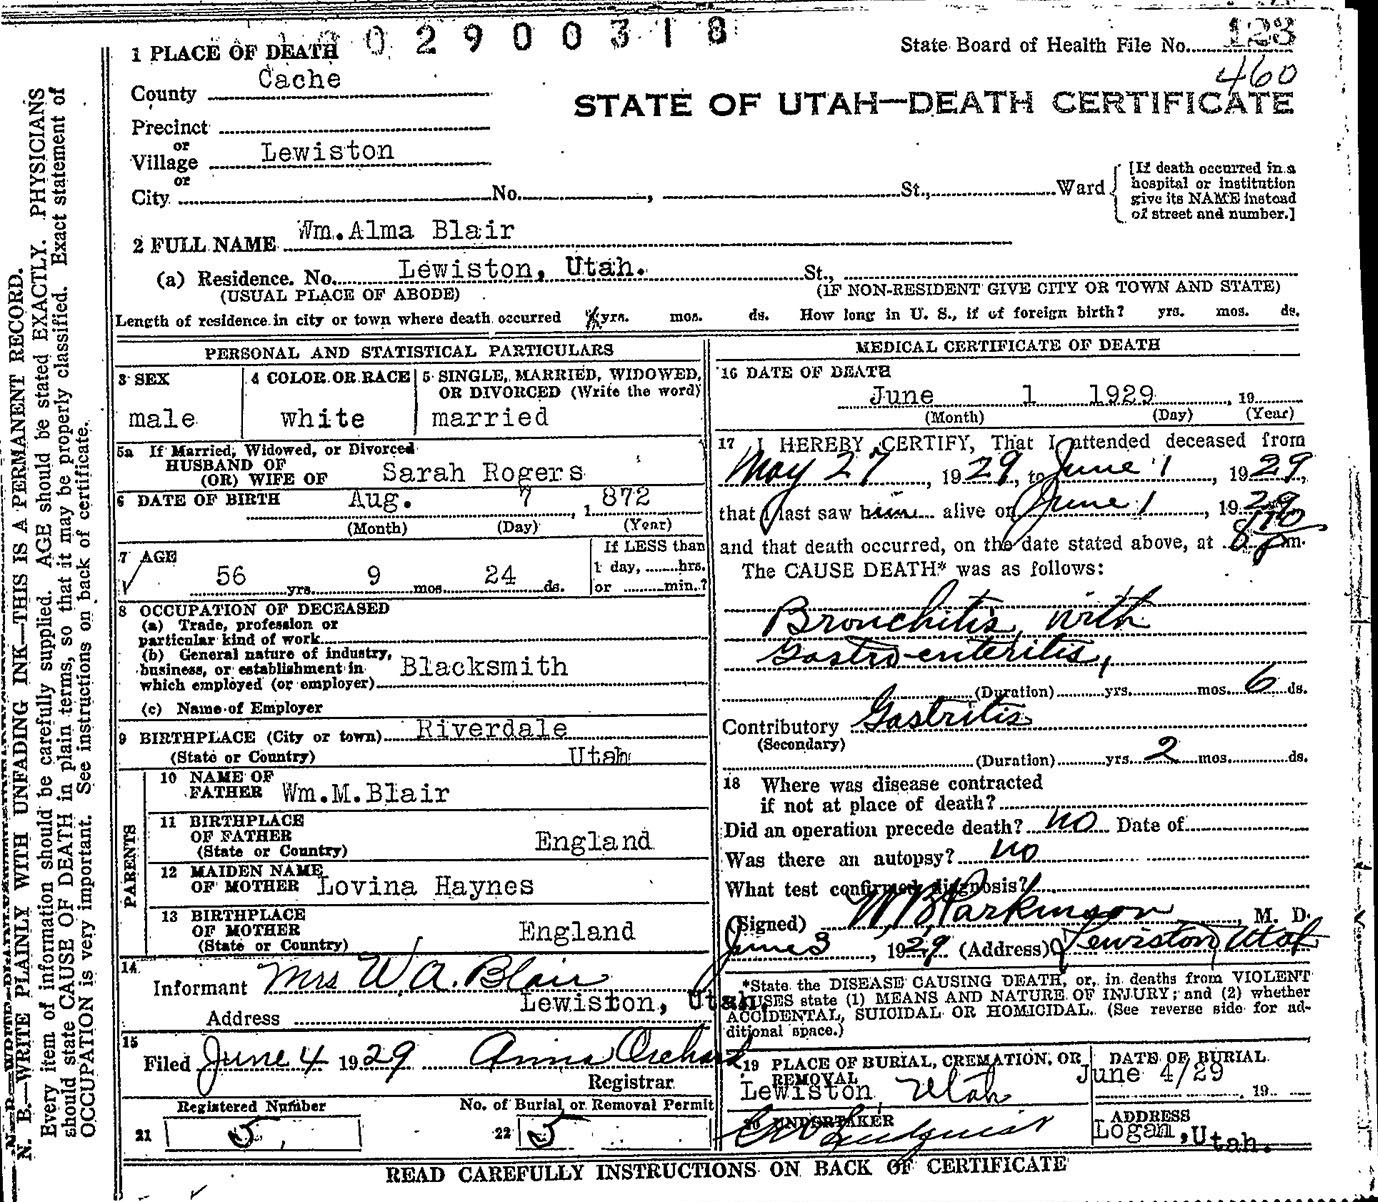 02900318
State Board of Health File No. 123
460
STATE OF UTAH—DEATH CERTIFICATE
1 PLACE OF DEATH
County Cache
Precinct
or
Village Lewiston
or
City No. , St., Ward
[If death occurred in a
hospital or institution
give its NAME instead
of street and number.]
2 FULL NAME Wm.Alma Blair
(a) Residence. No. Lewiston, Utah. St.,
(USUAL PLACE OF ABODE) (IF NON-RESIDENT GIVE CITY OR TOWN AND STATE)
Length of residence in city or town where death occurred yrs. mos. ds. How long in U. S., if of foreign birth? yrs. mos. ds.
PERSONAL AND STATISTICAL PARTICULARS
3 SEX
male
4 COLOR OR RACE
white
5 SINGLE, MARRIED, WIDOWED,
OR DIVORCED (Write the word)
married
5a If Married, Widowed, or Divorced
HUSBAND OF
(OR) WIFE OF Sarah Rogers
6 DATE OF BIRTH Aug. 7, 1872
(Month) (Day) (Year)
7 AGE
56 yrs. 9 mos. 24 ds.
If LESS than
1 day, hrs.
or min.?
8 OCCUPATION OF DECEASED
(a) Trade, profession or
particular kind of work
(b) General nature of industry,
business, or establishment in
which employed (or employer) Blacksmith
(c) Name of Employer
9 BIRTHPLACE (City or town) Riverdale
(State or Country) Utah
PARENTS
10 NAME OF
FATHER Wm.M.Blair
11 BIRTHPLACE
OF FATHER
(State or Country) England
12 MAIDEN NAME
OF MOTHER Lovina Haynes
13 BIRTHPLACE
OF MOTHER
(State or Country) England
14
Informant Mrs W.A. Blair
Address Lewiston, Utah
15
Filed June 4 1929 Anna Orchard
Registrar
Registered Number
21 5
No. of Burial or Removal Permit
22 5
MEDICAL CERTIFICATE OF DEATH
16 DATE OF DEATH
June 1 1929, 19
(Month) (Day) (Year)
17 I HEREBY CERTIFY, That I attended deceased from
May 27, 1929, to June 1, 1929,
that I last saw him alive on June 1, 1929
and that death occurred, on the date stated above, at 8 m.
The CAUSE DEATH* was as follows:
Bronchitis, with
Gastro-enteritis,
(Duration) yrs. mos. 6 ds.
Contributory Gastritis
(Secondary)
(Duration) yrs. 2 mos. ds.
18 Where was disease contracted
if not at place of death?
Did an operation precede death? no Date of
Was there an autopsy? no
What test confirmed diagnosis?
(Signed) W.B. Parkinson, M. D.
June 3, 1929 (Address) Lewiston Utah
*State the DISEASE CAUSING DEATH, or, in deaths from VIOLENT
CAUSES state (1) MEANS AND NATURE OF INJURY; and (2) whether
ACCIDENTAL, SUICIDAL OR HOMICIDAL. (See reverse side for ad-
ditional space.)
19 PLACE OF BURIAL, CREMATION, OR
REMOVAL
Lewiston Utah
DATE OF BURIAL
June 4/29 19
20 UNDERTAKER
Lindquist
ADDRESS
Logan, Utah.
READ CAREFULLY INSTRUCTIONS ON BACK OF CERTIFICATE
N. B.—WRITE PLAINLY WITH UNFADING INK—THIS IS A PERMANENT RECORD.
Every item of information should be carefully supplied. AGE should be stated EXACTLY. PHYSICIANS
should state CAUSE OF DEATH in plain terms, so that it may be properly classified. Exact statement of
OCCUPATION is very important. See instructions on back of certificate.